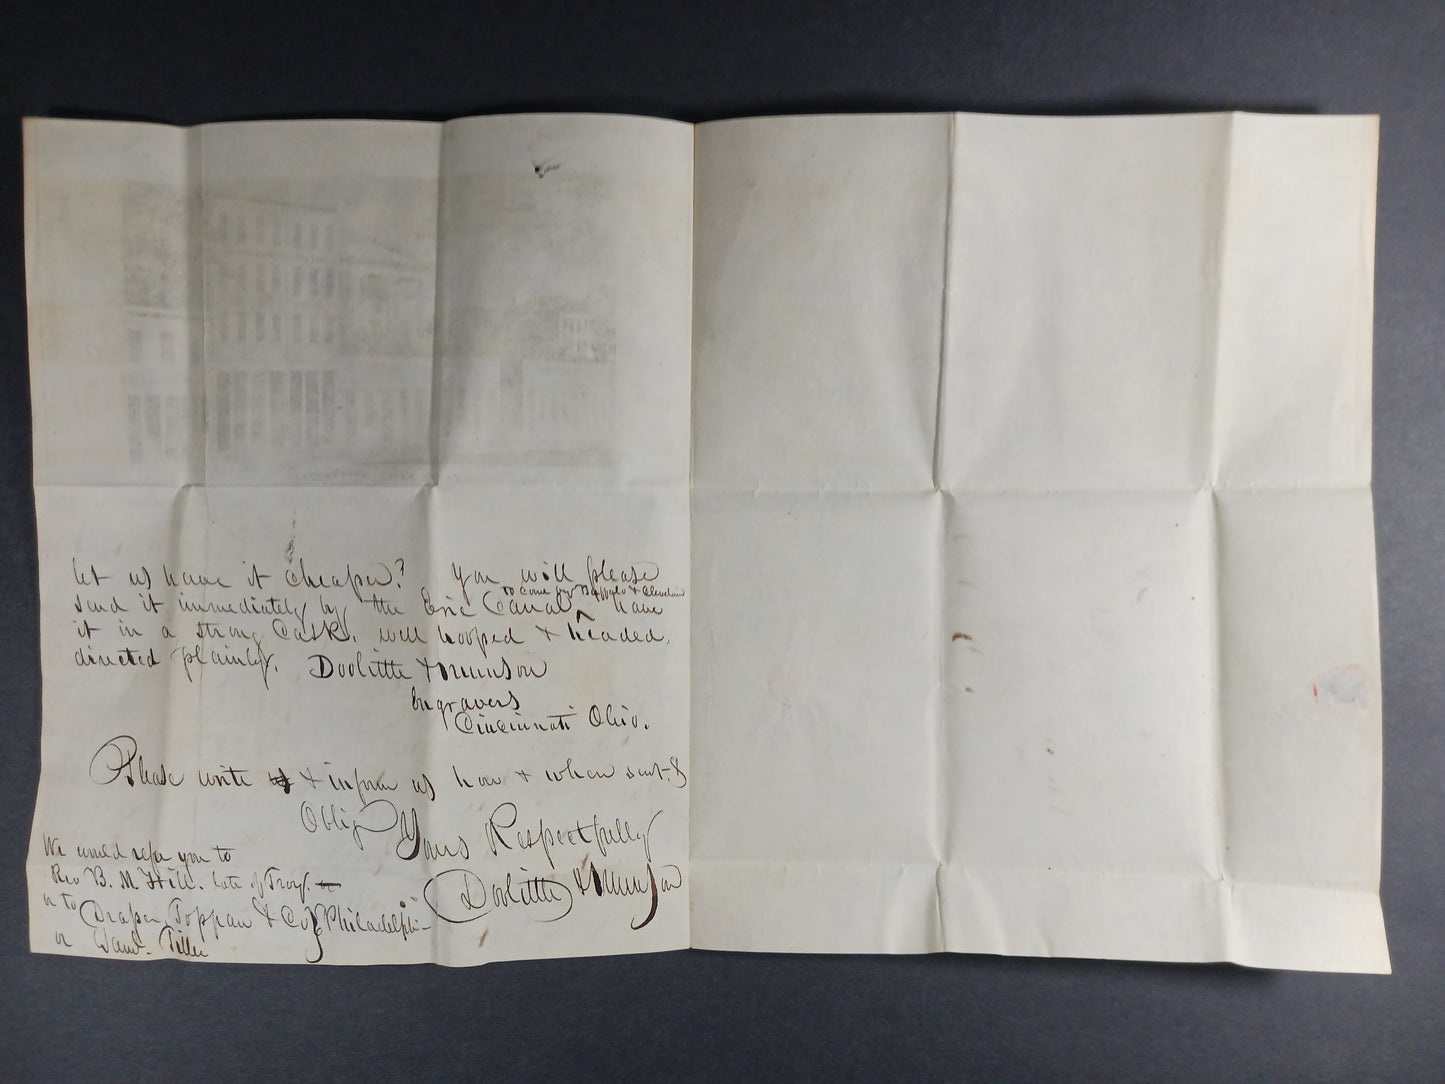 let us have it cheaper? You will please
send it immediately by the Erie Canal ^ have
to come by Buffalo & Cleveland
it in a strong Cask. well hooped & headed,
directed plainly. Doolittle & Munson
Engravers
Cincinnati Ohio.
Please write & inform us how & when sent. &
Oblig
Yours Respectfully
Doolittle & Munson
We would refer you to
Rev B. M. Hill. late of Troy.
or to Draper, Toppan & Co Philadelphi
or Saml. Tiller